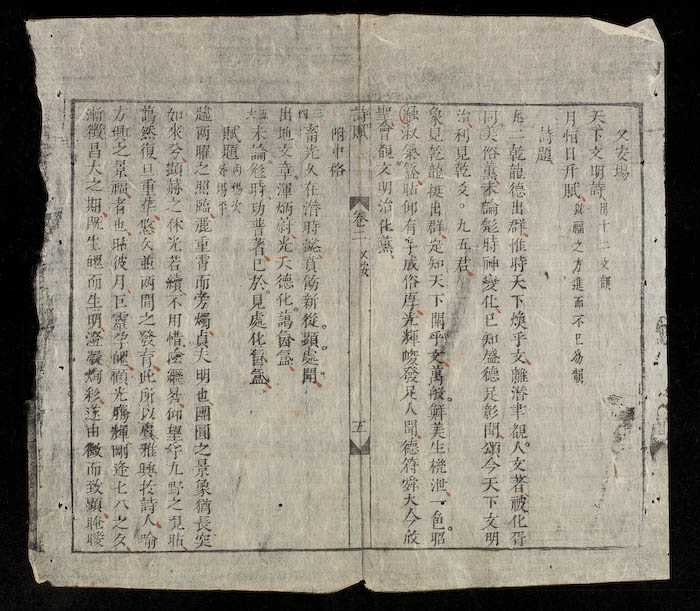 乂安場
天下文明詩 用十二文韻
月恒日升賦 以福之方進而不已為韻
詩題
九二乾龍德出群惟時天下煥乎文離潛聿覩人文著被化胥
同美俗薰未論彪時神變化已知盛德足彰聞頌今天下文明
治利見乾爻九五君
象見乾龍挺出群定知天下闡乎文萬般鮮美生機泄一色昭
融淑氣盛貼仰有孚咸俗厚光輝峻發足人聞德符舜大今放
聖會覩文明治化熏
詩賦
卷二 乂安
五
附中格
三四 畜光久在潛時誼賁飾新從顕處開
出地文章渾炳蔚光天德化藹氤氳
五六 未論彪時功普著已於見處化氤氳
賦題
趂兩曜之照臨麗重霄而旁燭貞夫明也團圓之景象猶長突
如來兮顕赫之休光若續不用惜陰繼晷仰望兮九野之覘貼
藹然復旦重華悠久並兩間之發育此所以賡雅興於詩人喻
方興之景福者也貼彼月巨靈孕魄顧光騰輝剛逢七八之交
漸徵昌大之期既生魄而生明澄凝絢彩遂由微而致顕晻曖